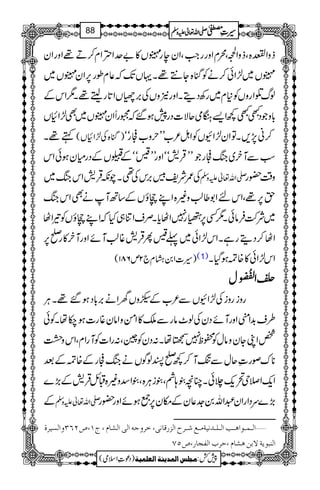 سیرتِ مصطفی صلی اللہ تعالیٰ علیہ وسلم
88
ذوالقعدہ، ذوالحجہ، محرم اور رجب، ان چار مہینوں کا بے حد احترام کرتے تھے اور ان
مہینوں میں لڑائی کرنے کو گناہ جانتے تھے۔ یہاں تک کہ عام طور پر ان مہینوں میں
لوگ تلواروں کو نیام میں رکھ دیتے۔ اور نیزوں کی برچھیاں اتار لیتے تھے۔ مگر اس کے
باوجود کبھی کبھی کچھ ایسے ہنگامی حالات درپیش ہو گئے کہ مجبوراً ان مہینوں میں بھی لڑائیاں
کرنی پڑیں۔ تو ان لڑائیوں کو اہل عرب ’’حروب فجار‘‘ (گناہ کی لڑائیاں) کہتے تھے۔
سب سے آخری جنگ فجار جو ’’قریش‘‘ اور ’’قیس‘‘ کے قبیلوں کے درمیان ہوئی اس
وقت حضور صلی اللہ تعالیٰ علیہ وسلم کی عمر شریف بیس برس کی تھی۔ چونکہ قریش اس جنگ میں
حق پر تھے، اس لئے ابو طالب وغیرہ اپنے چچاؤں کے ساتھ آپ نے بھی اس جنگ
میں شرکت فرمائی۔ مگر کسی پر ہتھیار نہیں اٹھایا۔ صرف اتنا ہی کیا کہ اپنے چچاؤں کو تیر اٹھا
اٹھا کر دیتے رہے۔ اس لڑائی میں پہلے قیس پھر قریش غالب آئے اور آخر کار صلح پر
اس لڑائی کا خاتمہ ہو گیا۔ (2) (سیرت ابن ہشام ج۲ ص۱۸۶)
حلف الفُضول
روز روز کی لڑائیوں سے عرب کے سیکڑوں گھرانے برباد ہو گئے تھے۔ ہر
طرف بدامنی اور آئے دن کی لوٹ مار سے ملک کا امن وامان غارت ہو چکا تھا۔ کوئی
شخص اپنی جان و مال کو محفوظ نہیں سمجھتا تھا۔ نہ دن کو چین، نہ رات کو آرام، اس وحشت
ناک صورتِ حال سے تنگ آکر کچھ صلح پسند لوگوں نے جنگ فجار کے خاتمہ کے بعد
ایک اصلاحی تحریک چلائی۔ چنانچہ بنو ہاشم، بنو زہرہ، بنو اسد وغیرہ قبائل قریش کے بڑے
بڑے سرداران عبداللہ بن جدعان کے مکان پر جمع ہوئے اور حضور صلی اللہ تعالیٰ علیہ وسلم کے
......المواهب اللدنية مع شرح الزرقاني، خروجه الى الشام ، ج١، ص٣٦٢ والسيرة
النبوية لابن هشام ،حرب الفجار،ص٧٥
پیش کش: مجلس المدينة العلمية (دعوتِ اسلامی)